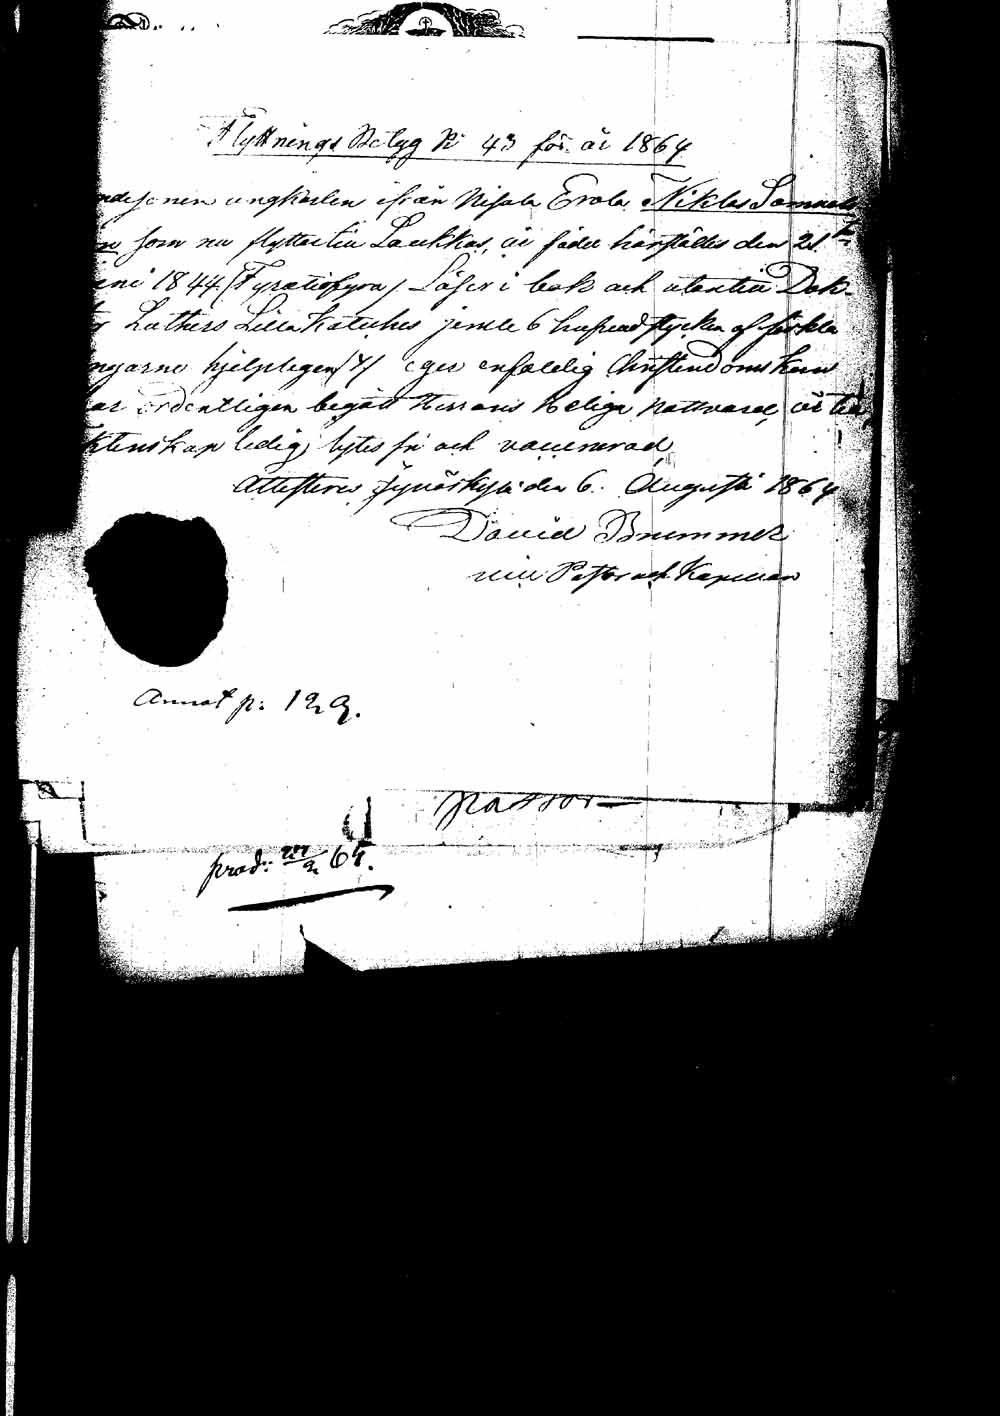 Flyttnings Betyg No 43 för år 1864
ungkarlen ifrån Nisola Erola, Niklas Samuels-
n som nu flyttar till Laukkas, är född härstädes den 21
uni 1844 (Fyratiofyra) Läser i bok och utantill Dok-
Luthers Lilla Kateches jemte 6 hufvudstycken af förkla
ngarne hjelpligen eger enfaldig Christendoms kun
ar ordentligen begått Herrans Heliga Nattvard, är till
ktenskap ledig, lytes fri och vaccinerad,
Attesteras Jyväskylä den 6. Augusti 1864
David Brummer
Pastor och Kapellan
Annot p: 129.
Pastor
prod: 65.